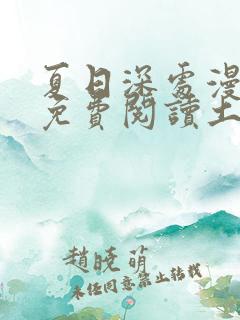 夏日深處漫
免費閱讀土
趙曉萌
未任同意禁止轉載